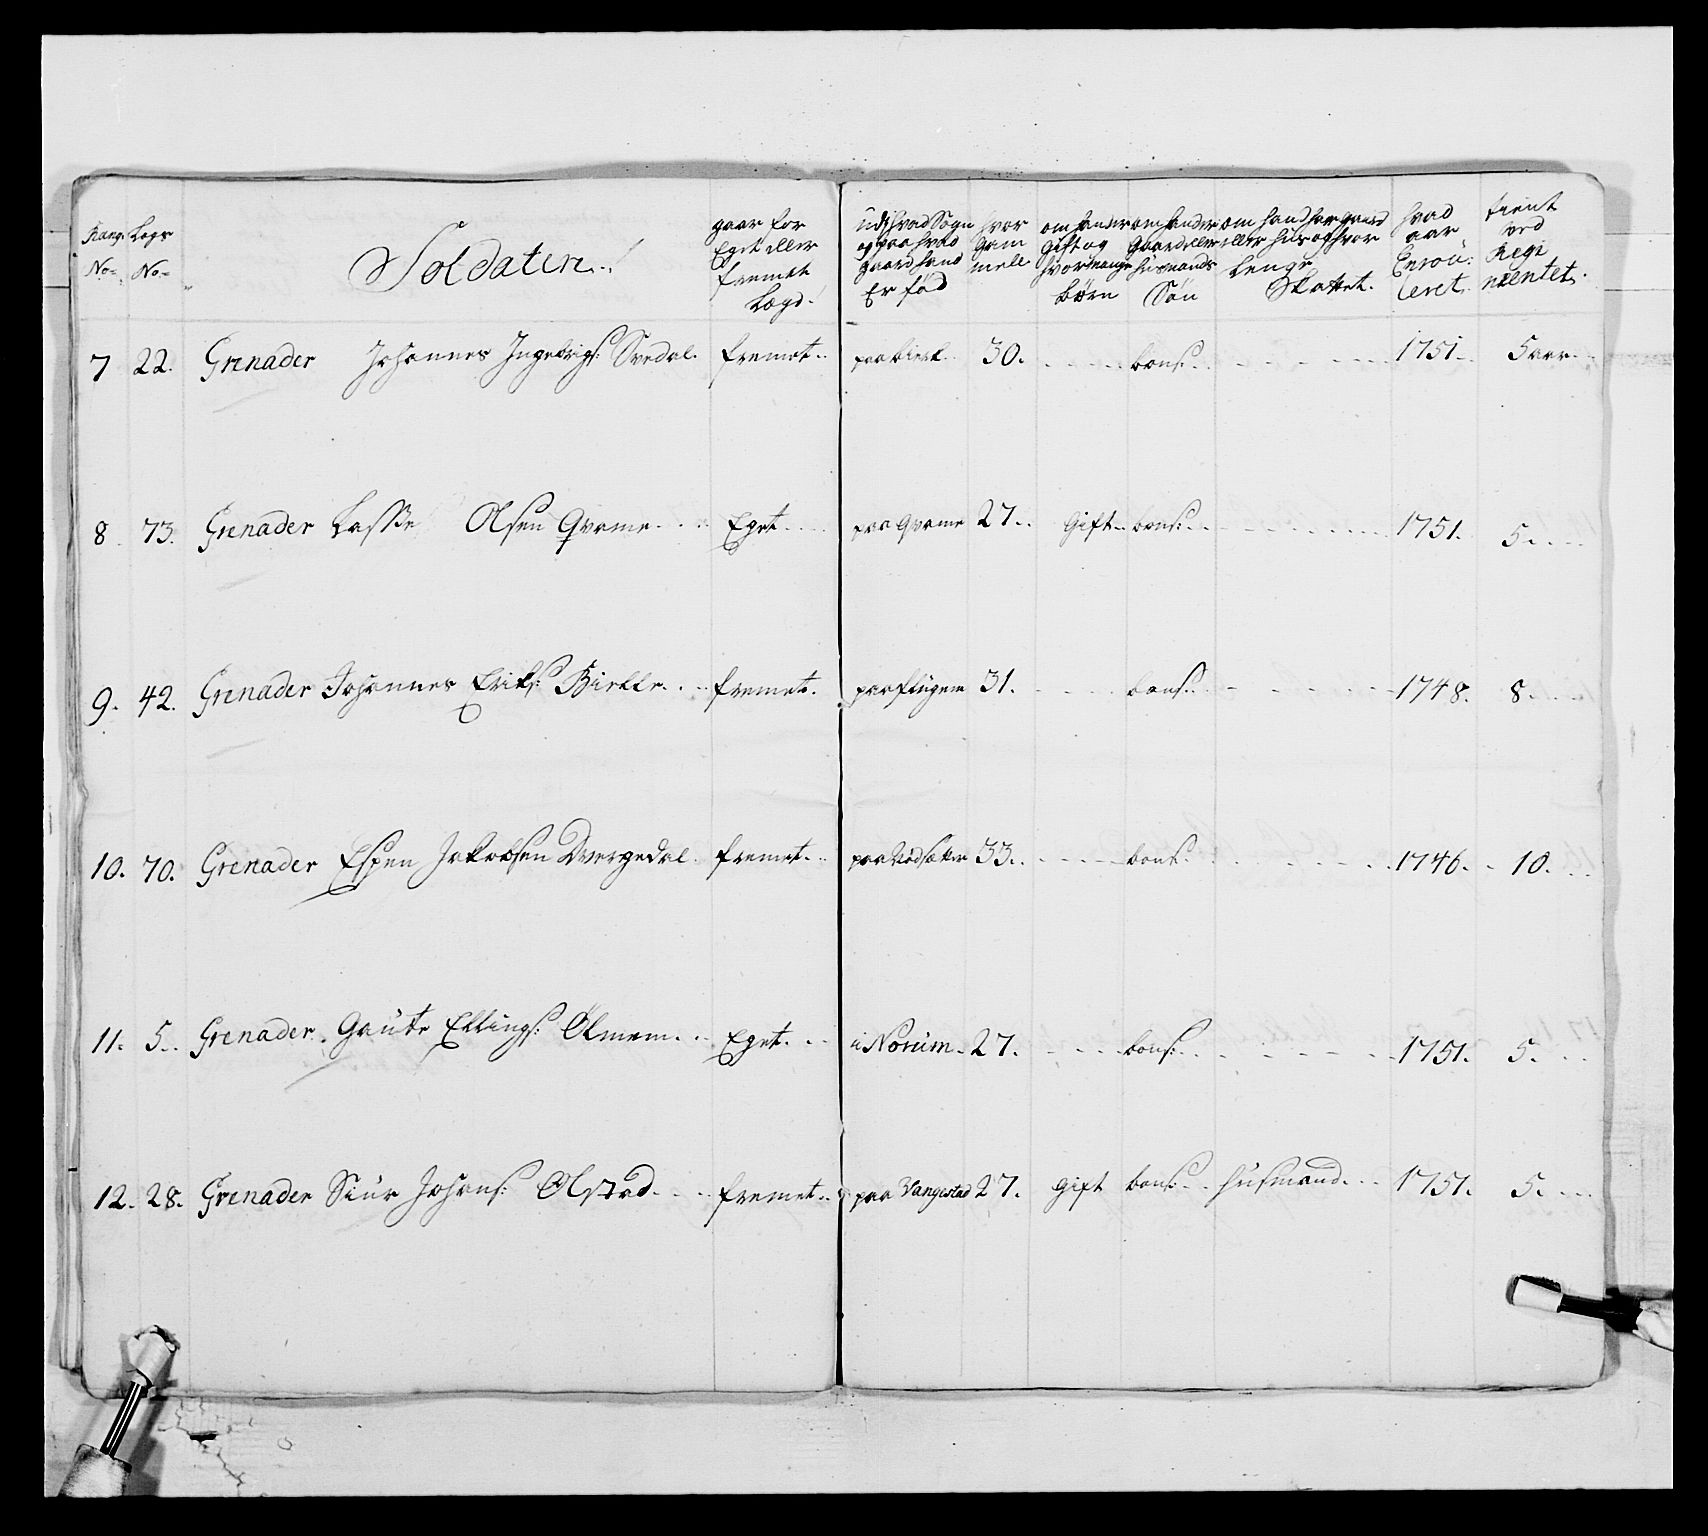 Rang. No. | Legs No. | Soldaten. | gaar for Eget eller fremet Lægd. | udj hvad Sogn og paa hvad gaard hand Er fød | hvor Gammell | om hand er Gift og hvor mange børn | om hand er Gaard eller husmands Søn | om hand har gaard eller huus og hvor lenge Skattet. | hvad aar Enroulleret | tient ved Regimentet.
7 22. Grenader Johannes Ingebrigs: Svedal. fremet. paa Bierk. 30. bons: 1751. 5 aar.
8 73. Grenader Lasse Olsen Qvame. Eget. paa Qvame 27. Gift. bons: 1751. 5.
9. 42. Grenader Johannes Eriks: Birkle. fremet. paa Flugem 31. bons: 1748. 8.
10. 70. Grenader Espen Jakobsen Dvergedal. fremet. paa 33. bons: 1746. 10.
11. 5. Grenader. Gaute Ellings: Ølmem. Eget. i Norum. 27. bons: 1751. 5.
12. 28. Grenader Siur Johans: Olstad. fremet. paa Vangestad 27. Gift bons: husmand. 1751. 5.